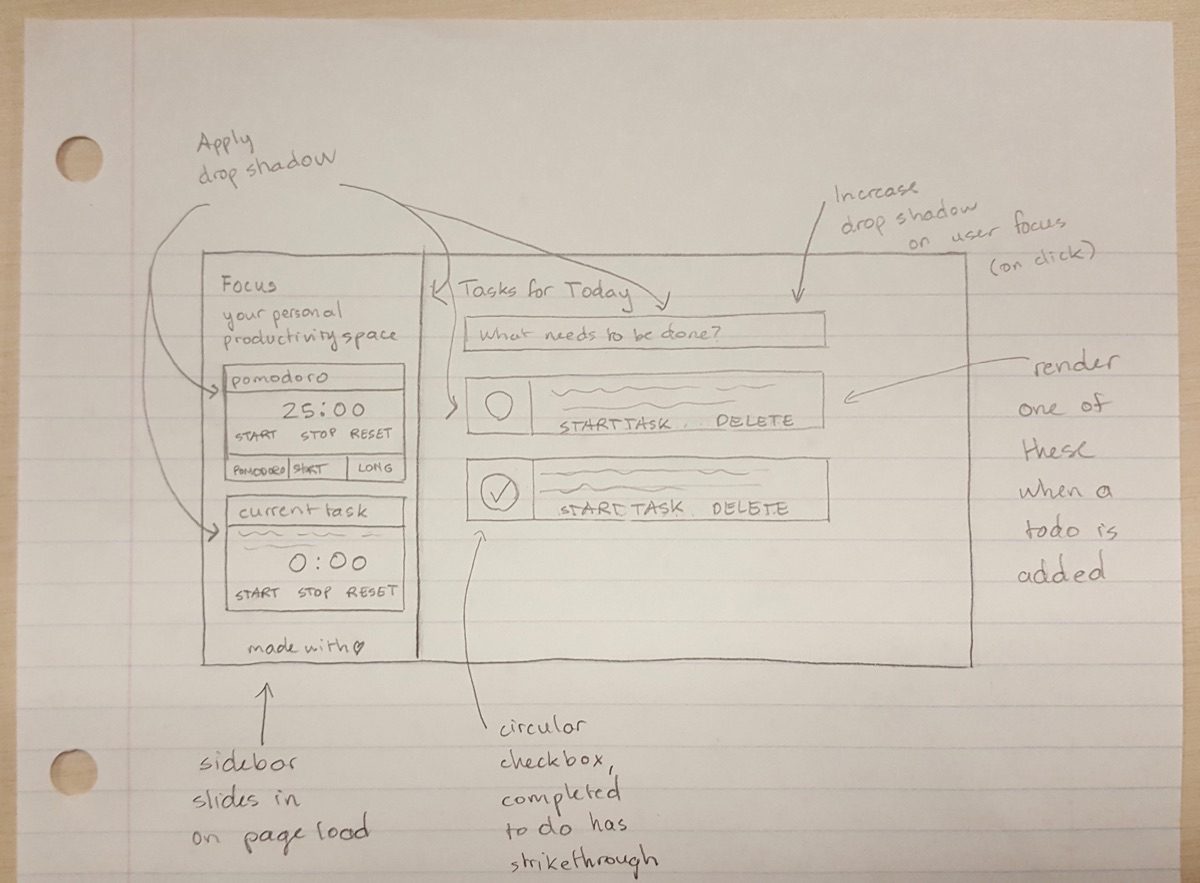 Apply
drop shadow
Increase
drop shadow
on user focus
(on click)
Focus
your personal
productivity space
pomodoro
25:00
START STOP RESET
POMODORO START LONG
current task
0:00
START STOP RESET
made with ♡
Tasks for Today
What needs to be done?
START TASK DELETE
START TASK DELETE
render
one of
these
when a
todo is
added
sidebar
slides in
on page load
circular
checkbox,
completed
to do has
strikethrough